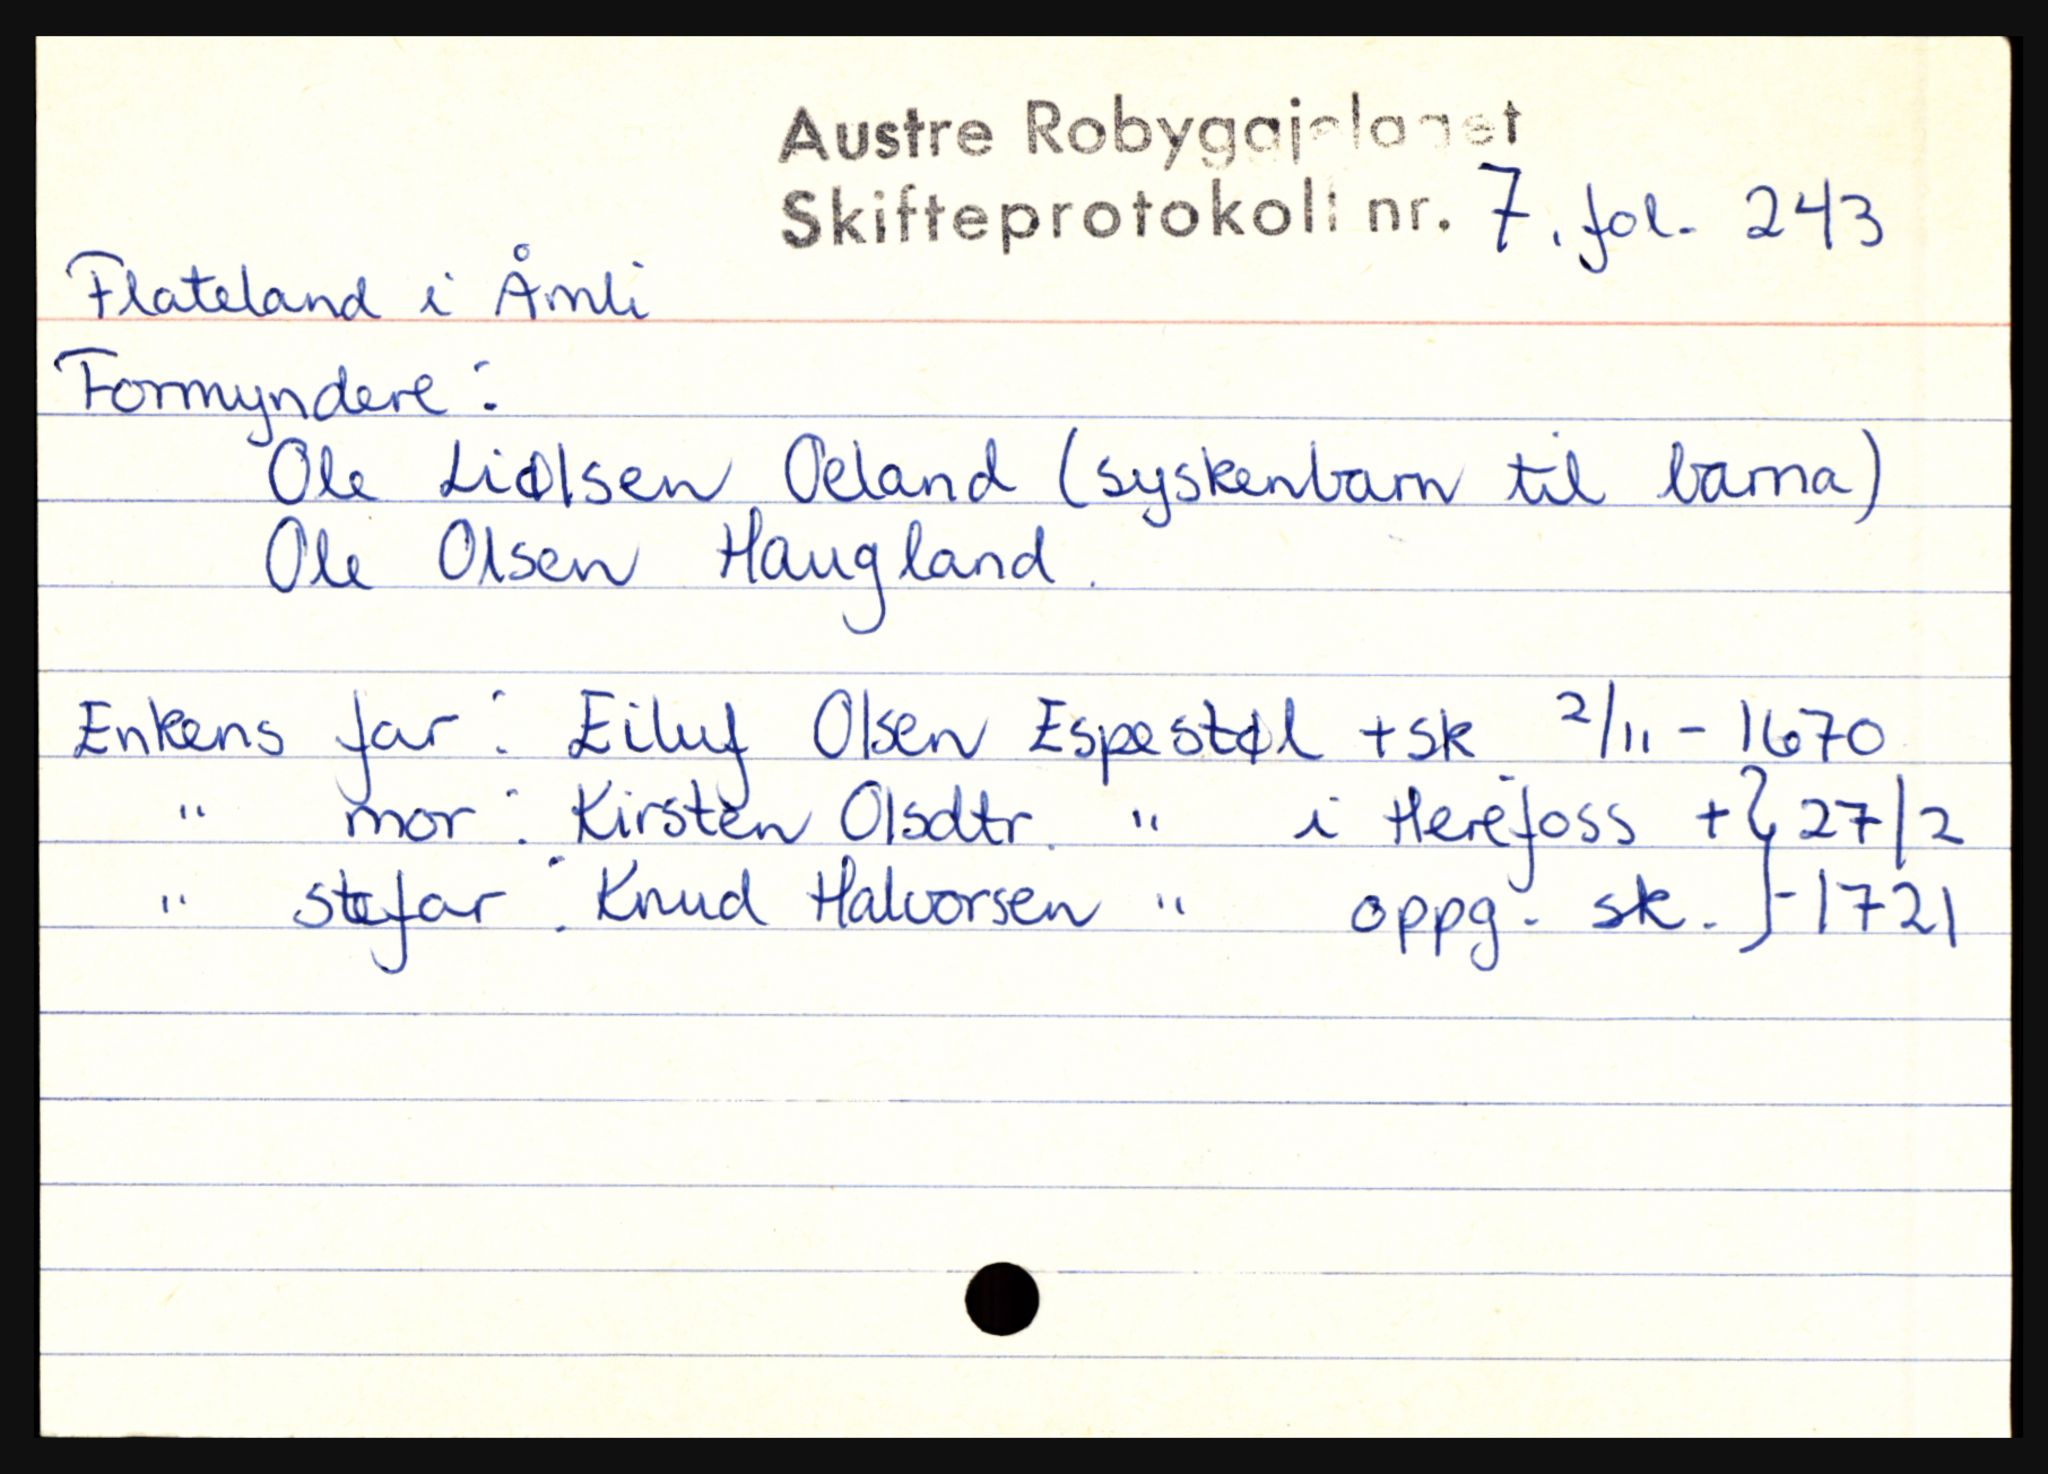 Austre Robyggjelaget
Skifteprotokoll nr. 7. fol. 243
Flateland i Åmli
Formyndere:
Ole Liølsen Øeland (syskenbarn til barna)
Ole Olsen Haugland.
Enkens far: Eiluf Olsen Espestøl + sk 2/11 - 1670
" mor: Kirsten Olsdtr. " i Herefoss + } 27/2
" stefar: Knud Halvorsen " oppg. sk. } - 1721